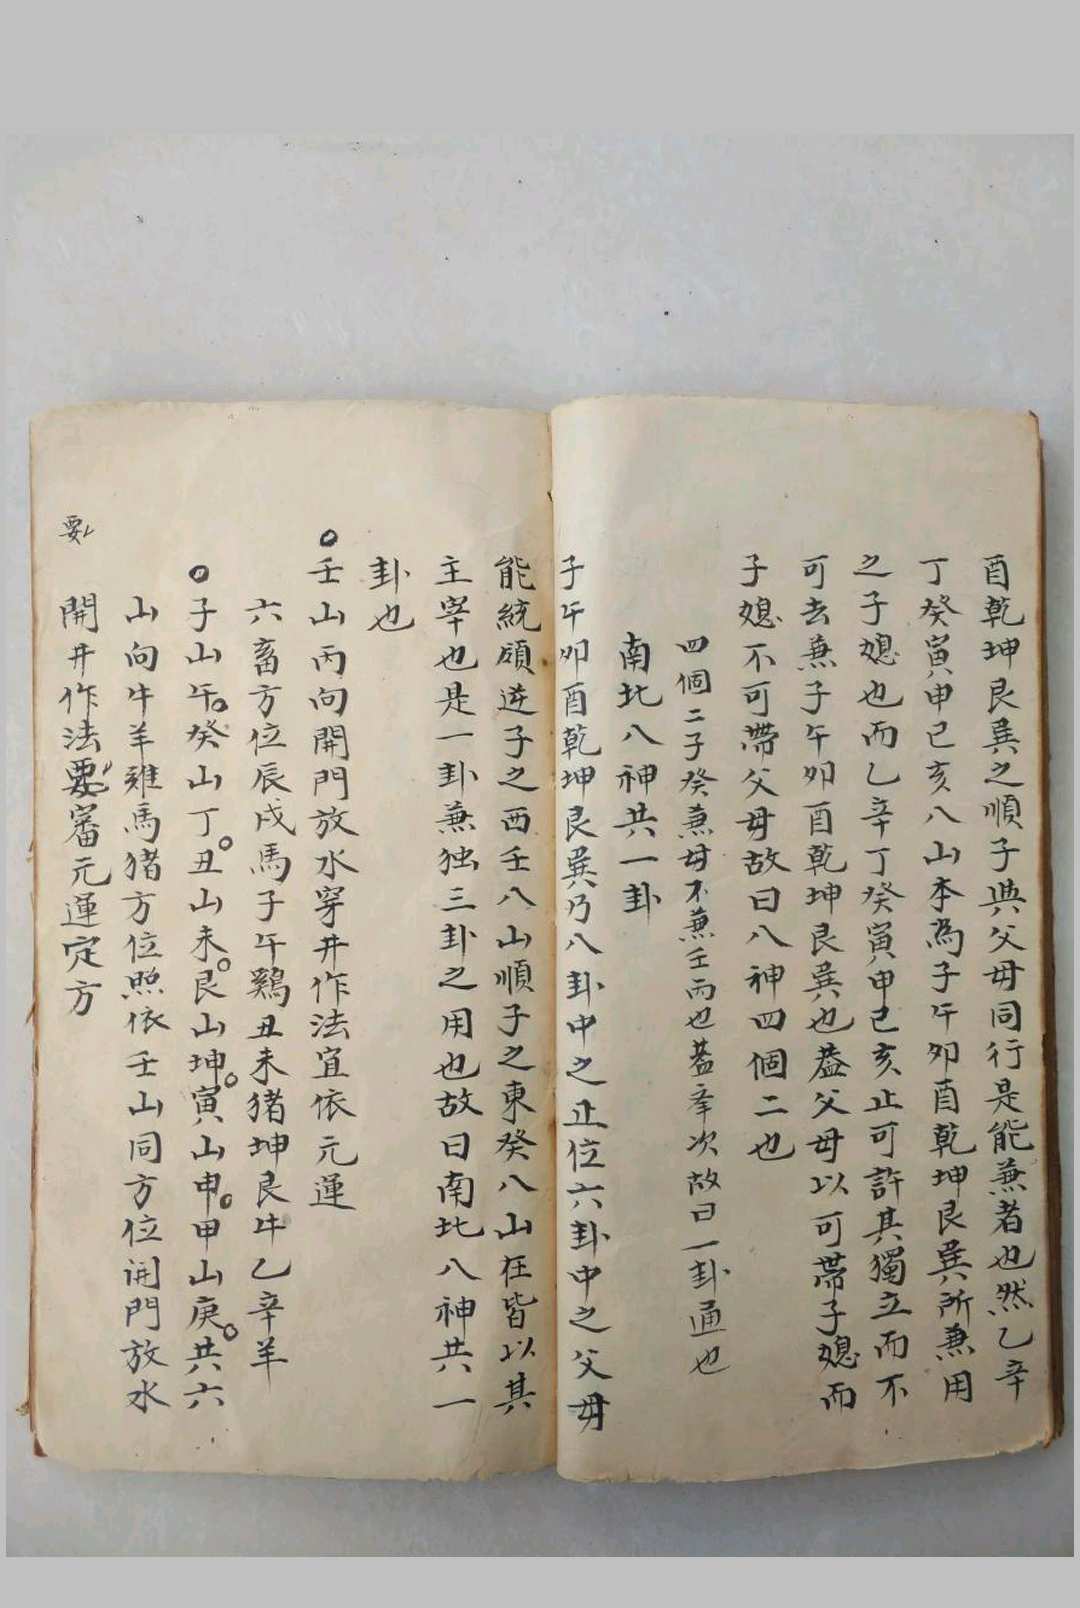 酉乾坤艮巽之順子與父母同行是能兼者也然乙辛
丁癸寅申巳亥八山本為子午卯酉乾坤艮巽所兼用
之子媳也而乙辛丁癸寅申巳亥止可許其獨立而不
可去兼子午卯酉乾坤艮巽也蓋父母以可帶子媳而
子媳不可帶父母故曰八神四個二也
四個二子癸兼母不兼壬丙也蓋次故曰一卦通也
南北八神共一卦
子午卯酉乾坤艮巽乃八卦中之止位六卦中之父母
能統領逆子之西壬八山順子之東癸八山在皆以其
主宰也是一卦兼独三卦之用也故曰南北八神共一
卦也
壬山丙向開門放水穿井作法宜依元運
六畜方位辰戌馬子午鷄丑未猪坤艮牛乙辛羊
子山午癸山丁丑山未艮山坤寅山申甲山庚共六
山向牛羊雞馬猪方位照依壬山同方位開門放水
開井作法要審元運定方
要